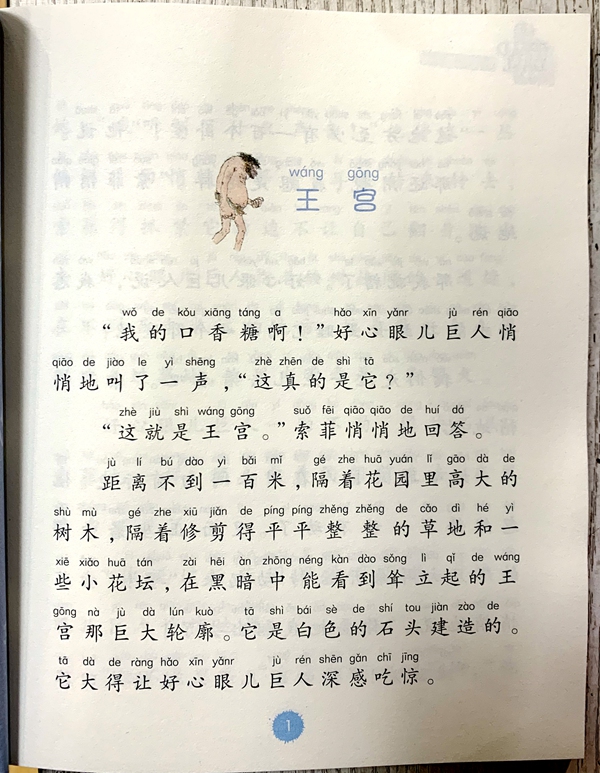 wáng gōng
王 宫
wǒ de kǒu xiāng táng a hǎo xīn yǎnr jù rén qiāo
“我的口香糖啊！”好心眼儿巨人悄
qiāo de jiào le yì shēng zhè zhēn de shì tā
悄地叫了一声，“这真的是它？”
zhè jiù shì wáng gōng suǒ fēi qiāo qiāo de huí dá
“这就是王宫。”索菲悄悄地回答。
jù lí bú dào yì bǎi mǐ gé zhe huā yuán lǐ gāo dà de
距离不到一百米，隔着花园里高大的
shù mù gé zhe xiū jiǎn de píng píng zhěng zhěng de cǎo dì hé yì
树木，隔着修剪得平平整整的草地和一
xiē xiǎo huā tán zài hēi àn zhōng néng kàn dào sǒng lì qǐ de wáng
些小花坛，在黑暗中能看到耸立起的王
gōng nà jù dà lún kuò tā shì bái sè de shí tou jiàn zào de
宫那巨大轮廓。它是白色的石头建造的。
tā dà de ràng hǎo xīn yǎnr jù rén shēn gǎn chī jīng
它大得让好心眼儿巨人深感吃惊。
1